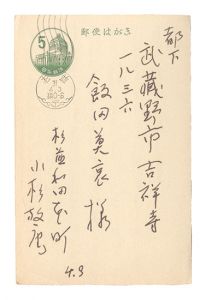 郵便はがき
5
都下
武蔵野市吉祥寺
一八三六
飯田莫哀様
杉並和田本町
小杉放庵
4.9